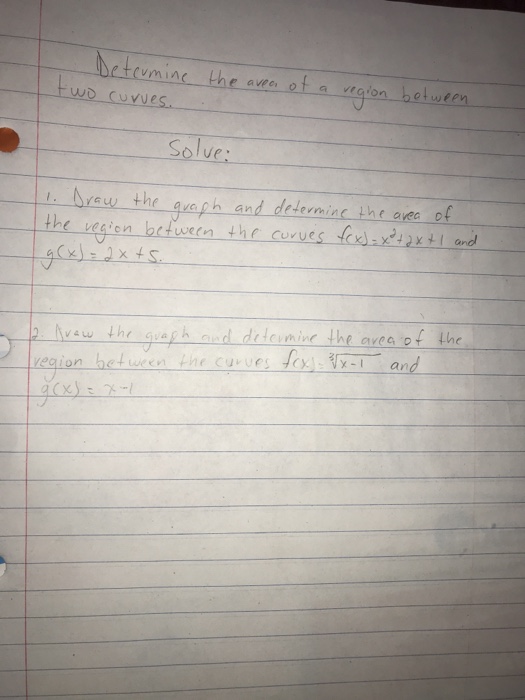 Determine the area of a region between
two curves.
Solve:
1. Draw the graph and determine the area of
the region between the curves f(x)=x²+2x+1 and
g(x)=2x+5.
2. Draw the graph and determine the area of the
region between the curves f(x)=∛x-1 and
g(x)=x-1